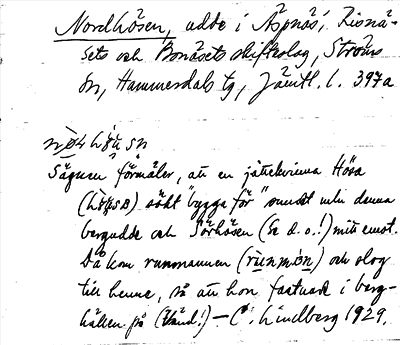 Nordhösen, udde i Äspnäs, Risnä-
sets och Bonäsets skifteslag, Ströms
sn, Hammerdals tg, Jämtl. l. 397a
Sägnen förmäler, att en jättekvinna Hösa
sökt "bygga för" sundet mln denna
bergudde och Sörhösen (Se d. o.!) mitt emot.
Då kom runmannen och slog
till henne, så att hon fastnade i berg-
hällen på – C. Lindberg 1929.